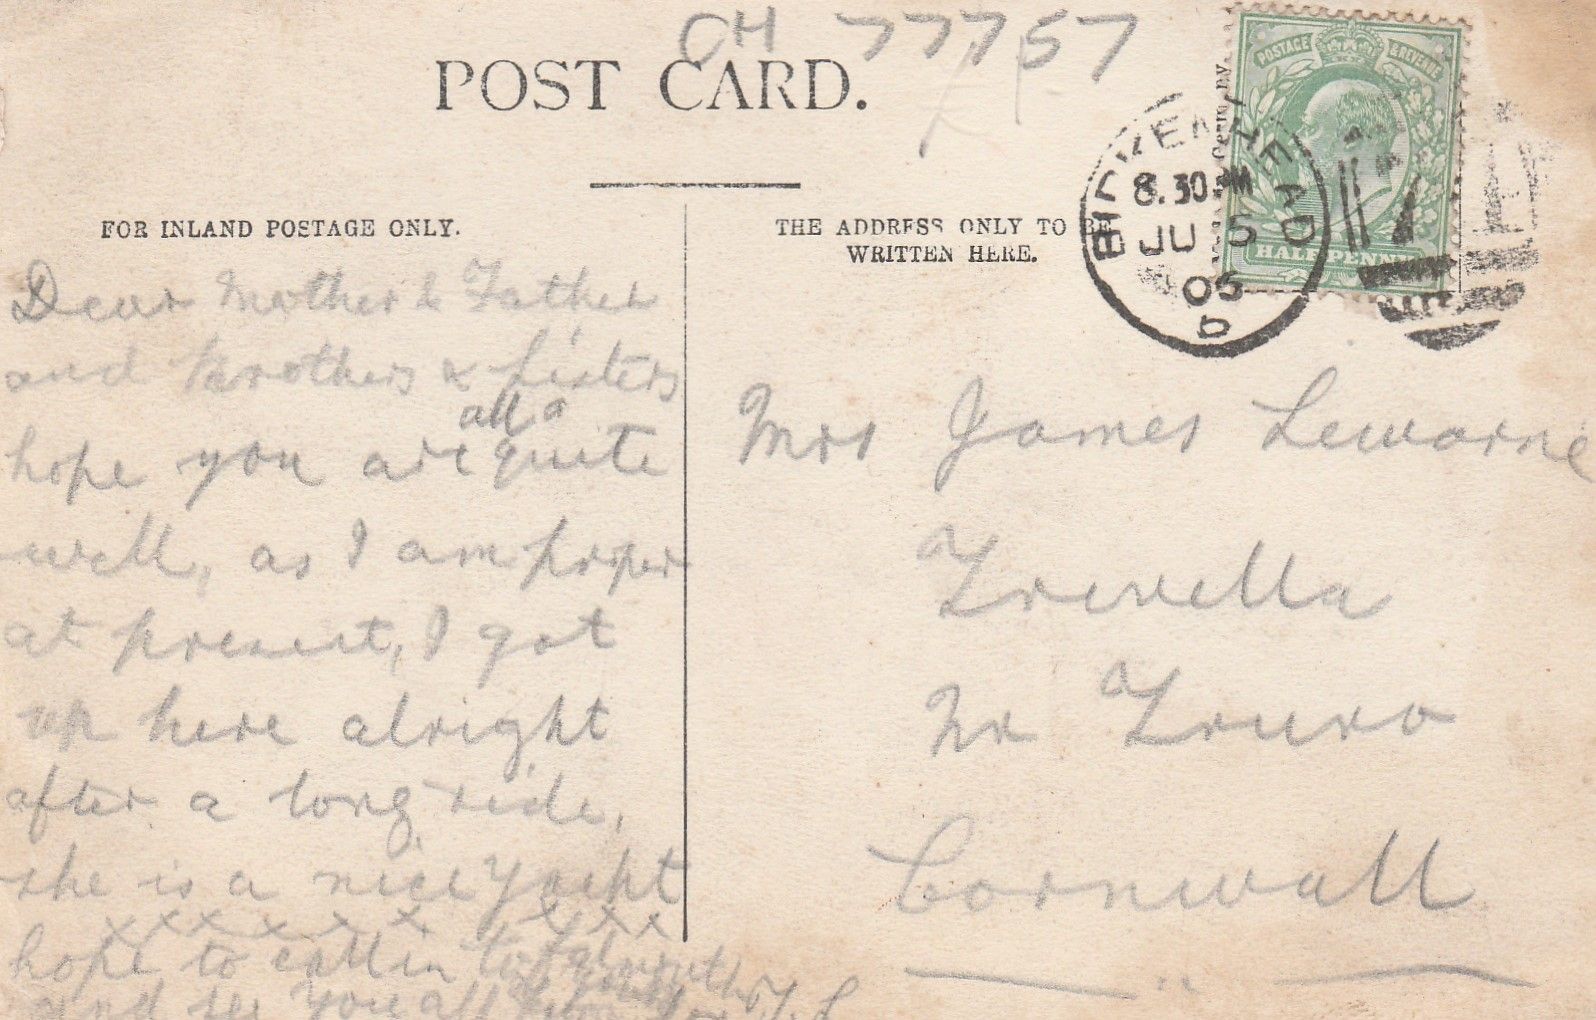 CH 77757
POST CARD.
POSTAGE & REVENUE
HALFPENNY
BIRKENHEAD
8.30 PM
JU 5
06
b
FOR INLAND POSTAGE ONLY.
Dear Mother & Father
and Brothers & Sisters
hope you are all quite
well, as I am proper
at present, I got
up here alright
after a long ride,
she is a nice Yacht
x x x x x x x x x
hope to call in to Falmouth
and see you all
THE ADDRESS ONLY TO BE
WRITTEN HERE.
Mrs James Lewarne
Trevella
Nr Truro
Cornwall